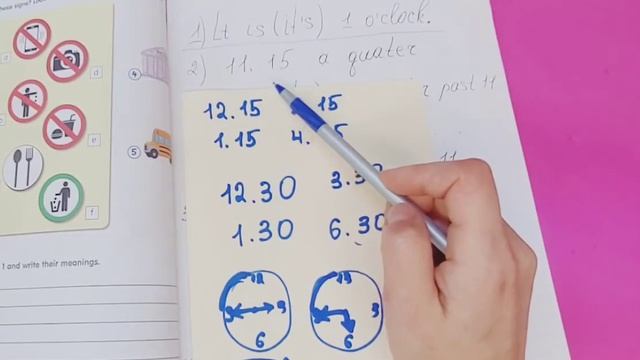 these signs?
d
4
e
5
f
1 and write their meanings.
1) It is (It's) 1 o'clock.
2) 11.15 a quater
past 11
11
12.15 15
1.15 4. 5
12.30 3.30
1.30 6.30
12
9 3
6
12
3
6